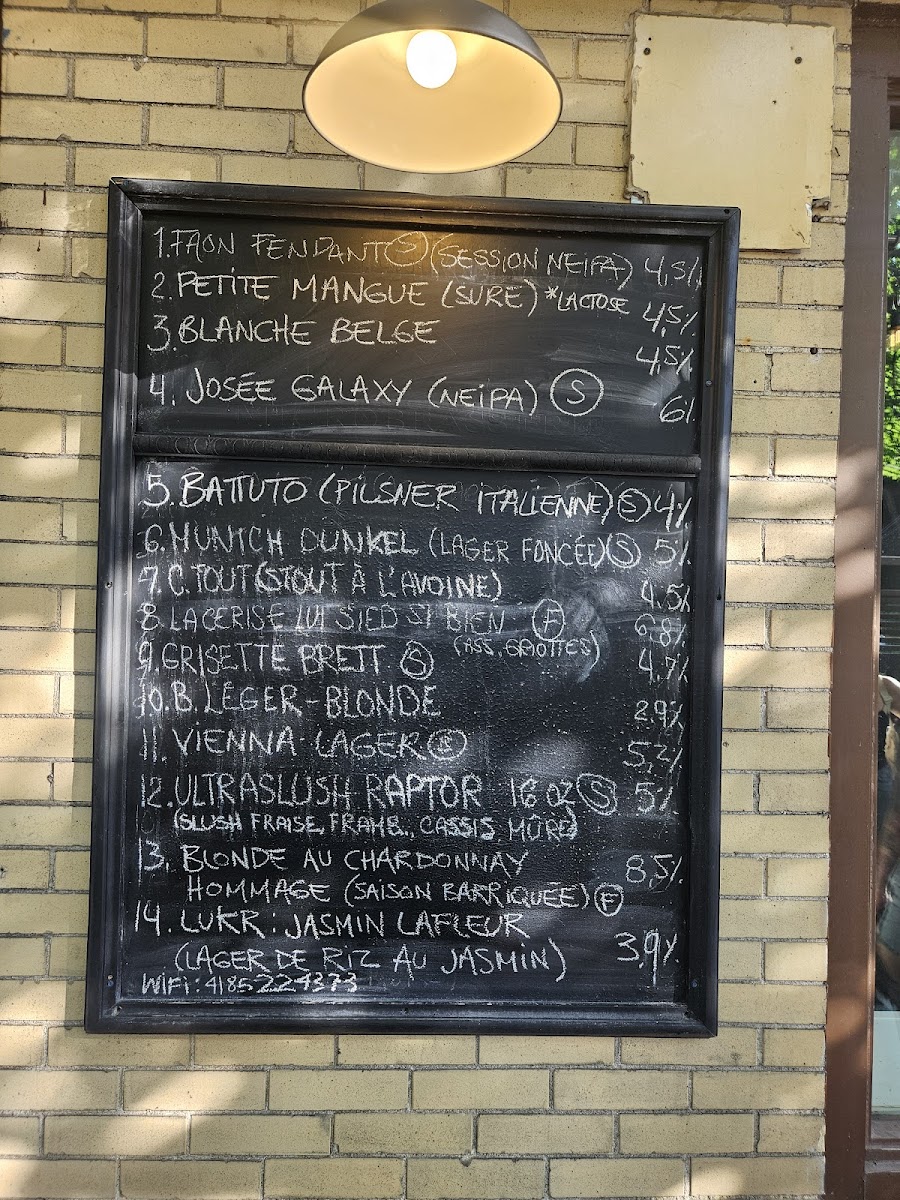 1. FAON FENDANT Ⓢ (SESSION NEIPA) 4,5%
2. PETITE MANGUE (SURE) *LACTOSE 4,5%
3. BLANCHE BELGE 4,5%
4. JOSÉE GALAXY (NEIPA) Ⓢ 6%
5. BATTUTO (PILSNER ITALIENNE) Ⓢ 4%
6. MUNICH DUNKEL (LAGER FONCÉE) Ⓢ 5%
7. C. TOUT (STOUT À L'AVOINE) 4.5%
8. LA CERISE LUI SIED SI BIEN Ⓕ 6,8%
(ASS. GRIOTTES)
9. GRISETTE BRETT Ⓢ 4.7%
10. B. LÉGER-BLONDE 2.9%
11. VIENNA LAGER 5,2%
12. ULTRASLUSH RAPTOR 16 OZ Ⓢ 5%
(SLUSH FRAISE, FRAMB., CASSIS MÛRE)
13. BLONDE AU CHARDONNAY 8,5%
HOMMAGE (SAISON BARRIQUÉE) Ⓕ
14. LUKR : JASMIN LAFLEUR
(LAGER DE RIZ AU JASMIN) 3,9%
WIFI : 4185224373